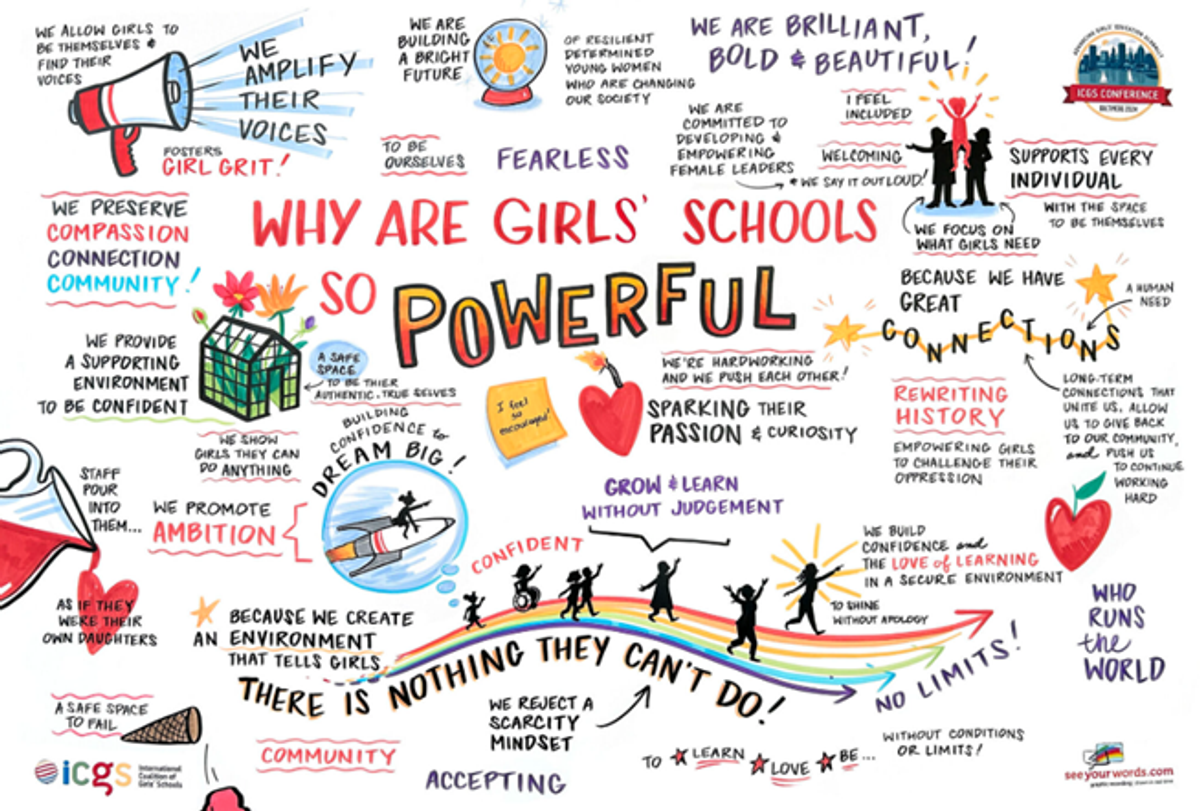 WE ALLOW GIRLS TO
BE THEMSELVES &
FIND THEIR
VOICES
WE
AMPLIFY
THEIR
VOICES
FOSTERS
GIRL GRIT!
WE ARE
BUILDING
A BRIGHT
FUTURE
OF RESILIENT
DETERMINED
YOUNG WOMEN
WHO ARE CHANGING
OUR SOCIETY
TO BE
OURSELVES
FEARLESS
WE ARE BRILLIANT,
BOLD & BEAUTIFUL!
WE ARE
COMMITTED TO
DEVELOPING &
EMPOWERING
FEMALE LEADERS
* WE SAY IT OUT LOUD!
I FEEL
INCLUDED
WELCOMING
WE FOCUS ON
WHAT GIRLS NEED
ICGS CONFERENCE
BALTIMORE 2024
SUPPORTS EVERY
INDIVIDUAL
WITH THE SPACE
TO BE THEMSELVES
WE PRESERVE
COMPASSION
CONNECTION
COMMUNITY!
WHY ARE GIRLS' SCHOOLS
SO POWERFUL
BECAUSE WE HAVE
GREAT
CONNECTIONS
A HUMAN
NEED
LONG-TERM
CONNECTIONS THAT
UNITE US, ALLOW
US TO GIVE BACK
TO OUR COMMUNITY,
and PUSH US
TO CONTINUE
WORKING
HARD
WE PROVIDE
A SUPPORTING
ENVIRONMENT
TO BE CONFIDENT
A SAFE
SPACE
TO BE THIER
AUTHENTIC, TRUE SELVES
WE SHOW
GIRLS THEY CAN
DO ANYTHING
I feel
so
encouraged!
WE'RE HARDWORKING
AND WE PUSH EACH OTHER!
SPARKING THEIR
PASSION & CURIOSITY
REWRITING
HISTORY
EMPOWERING GIRLS
TO CHALLENGE THEIR
OPPRESSION
STAFF
POUR
INTO
THEM...
AS IF THEY
WERE THEIR
OWN DAUGHTERS
WE PROMOTE
AMBITION
BUILDING
CONFIDENCE to
DREAM BIG!
GROW & LEARN
WITHOUT JUDGEMENT
CONFIDENT
WE BUILD
CONFIDENCE and
THE LOVE of LEARNING
IN A SECURE ENVIRONMENT
TO SHINE
WITHOUT APOLOGY
BECAUSE WE CREATE
AN ENVIRONMENT
THAT TELLS GIRLS
THERE IS NOTHING THEY CAN'T DO!
NO LIMITS!
WHO
RUNS
the
WORLD
WE REJECT A
SCARCITY
MINDSET
A SAFE SPACE
TO FAIL
COMMUNITY
ACCEPTING
TO LEARN LOVE BE...
WITHOUT CONDITIONS
OR LIMITS!
icgs
International
Coalition of
Girls' Schools
seeyourwords.com